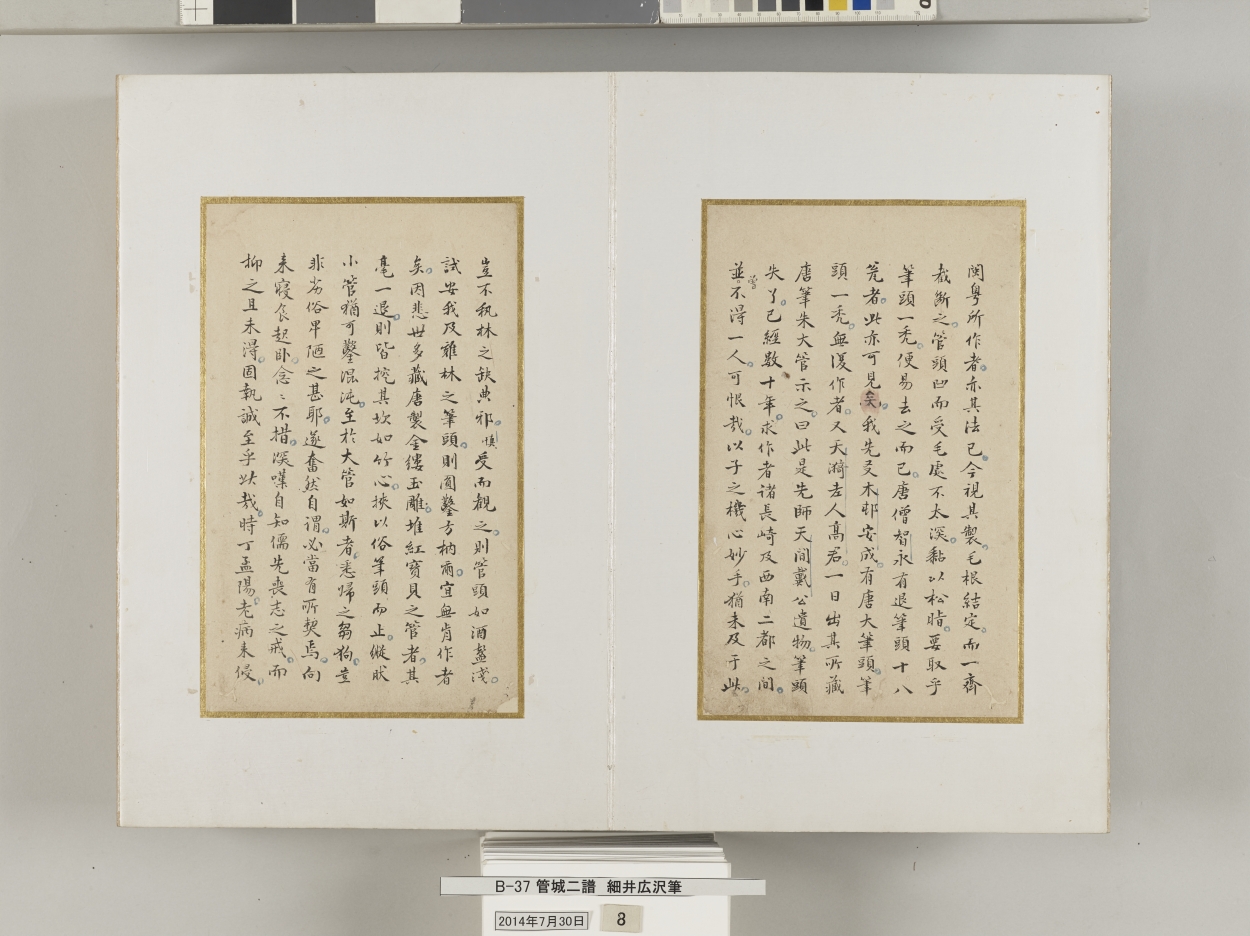 閩粤所作者亦其法已今視其製毛根結定而一齊
裁断之管頭凹而受毛處不太深黏以松脂要取乎
筆頭一禿便易去之而已唐僧智永有退筆頭十八
瓮者此亦可見矣我先友木邨安成有唐大筆頭筆
頭一禿無復作者又天漪老人高君一日出其所藏
唐筆朱大管示之曰此是先師天閒戴公遺物筆頭
失了已經数十年求作者諸長崎及西南二都之間
並不得一人可恨哉以子之機心妙手猶未及于此
曽
豈不執林之缺典邪慎受而観之則管頭如酒盞淺
試安我及雜林之筆頭則圓鑿方枘爾宜無肯作者
矣因悲世多藏唐製金縷玉雕堆紅寳貝之管者其
毫一退則皆挖其坎如竹心挾以俗筆頭而止縦狀
小管猶可鑿混沌至於大管如斯者悉歸之芻狗豈
非劣俗卑陋之甚耶遂奮然自謂必當有所契焉向
来寝食起卧念〻不措深嘆自知儒先喪志之戒而
抑之且未得固執誠至乎此哉時丁孟陽老病来侵
B-37 管城二譜 細井広沢筆
2014年7月30日
8